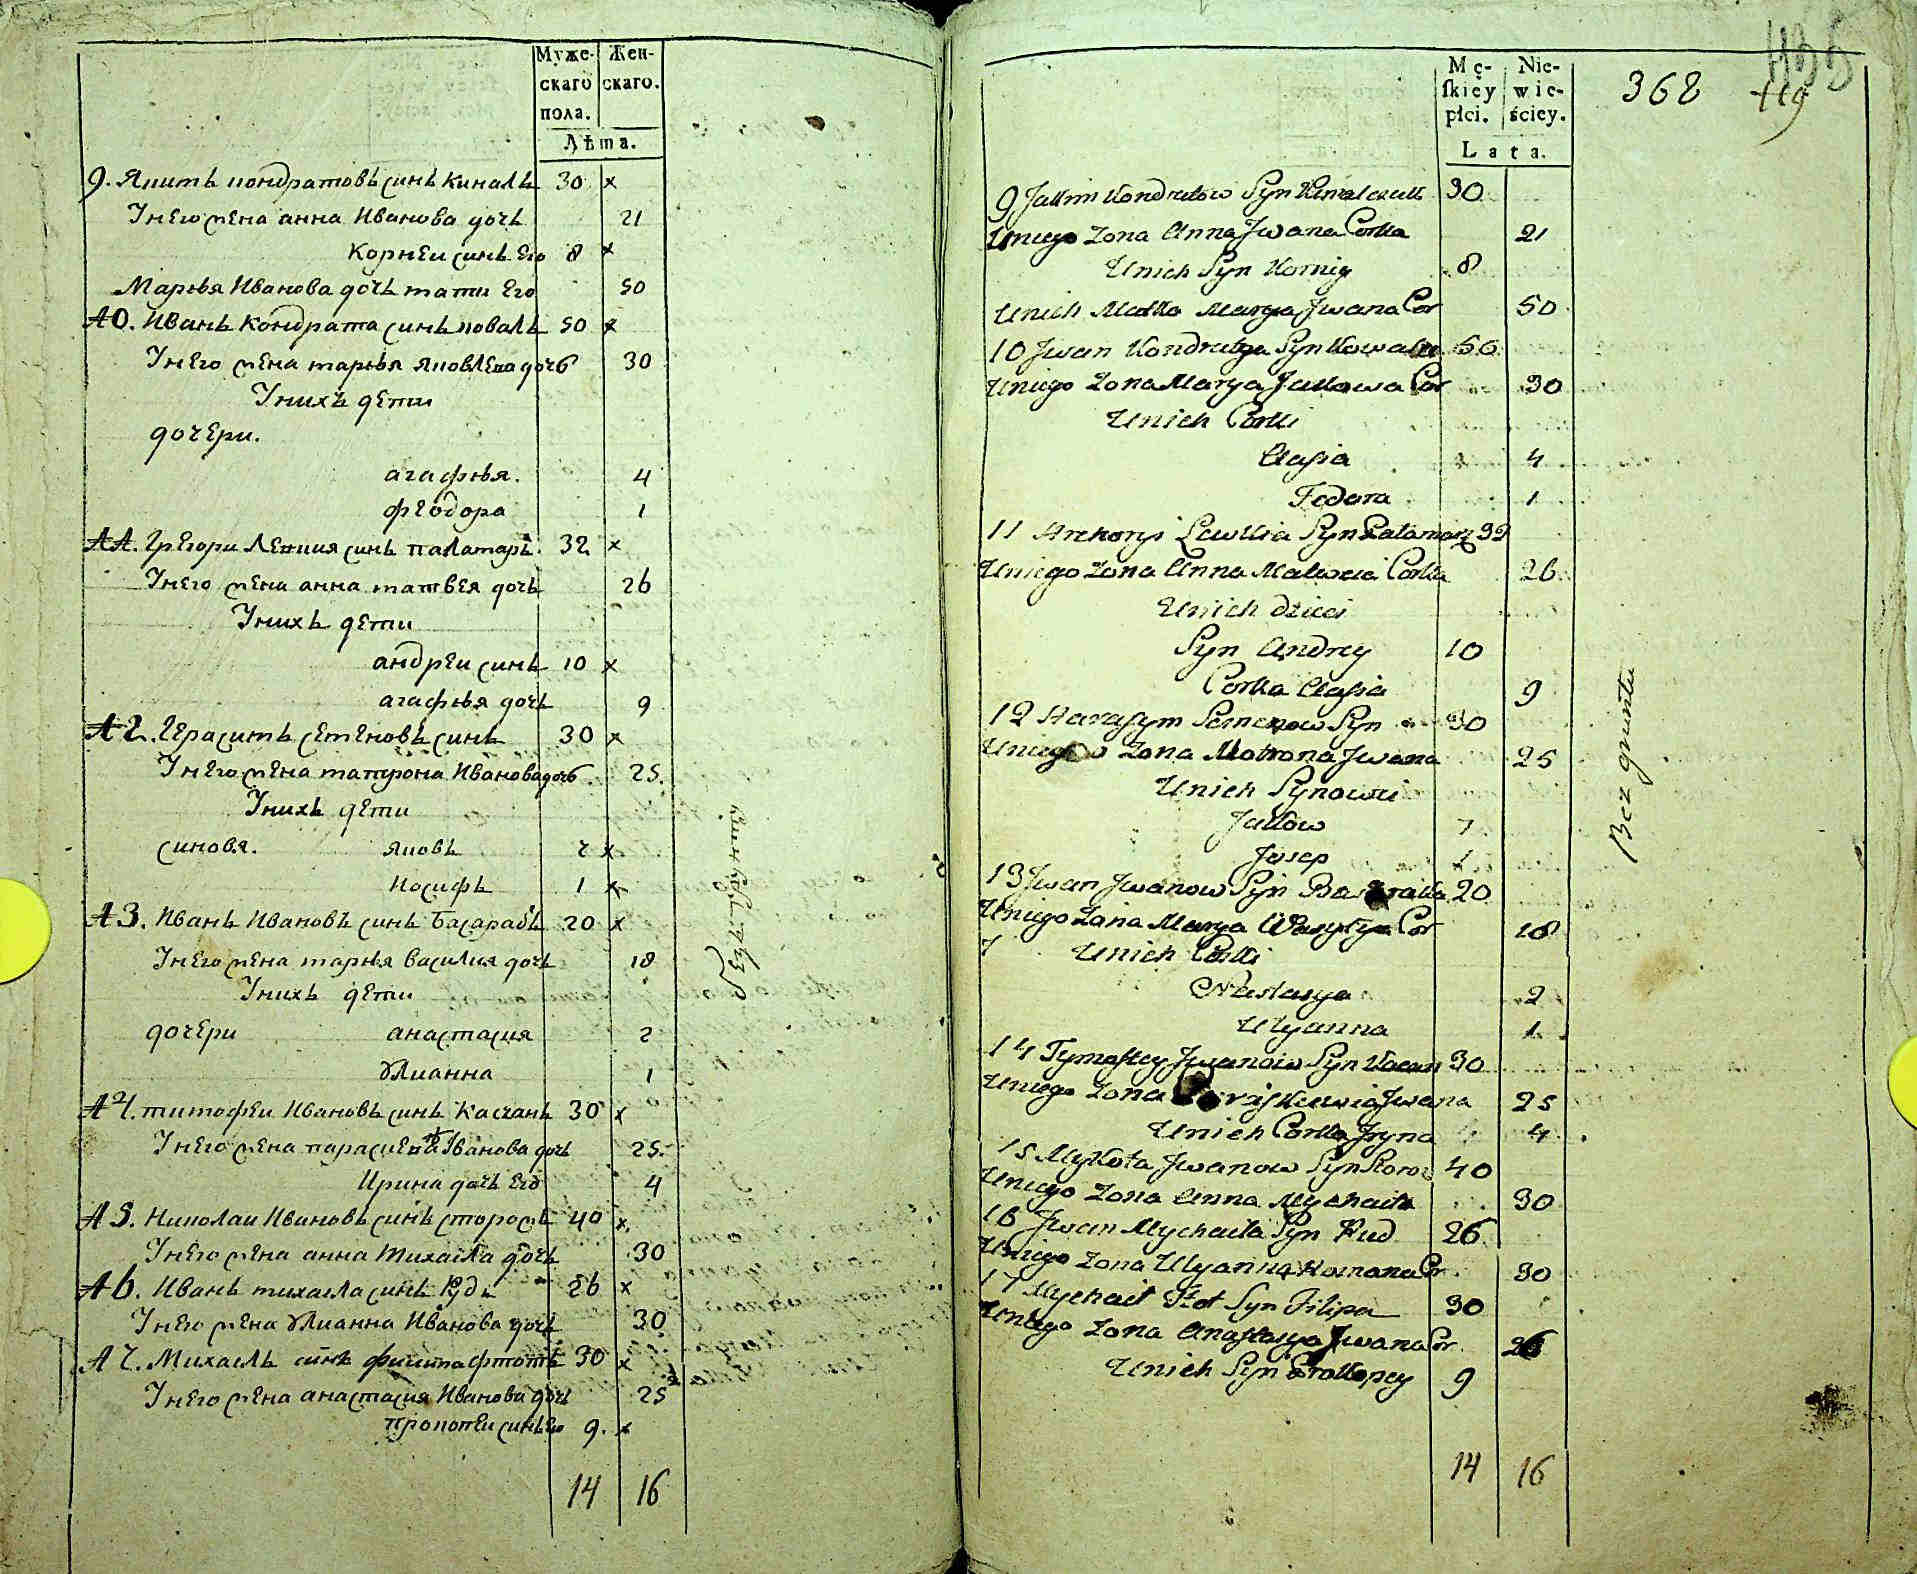 Муже-
скаго
пола.
Жен-
скаго.
Лѣта.
9. Якимъ кондратовъ синъ ковалъ 30 x
Унего жена анна Иванова дочь 21
Корнеи синъ Его 8 x
Марья Иванова дочь мати Его 50
10. Иванъ Кондрата синъ коваль 50 x
Унего жена марья яковлева дочь 30
Унихъ дети
дочери.
агафья. 4
феодора 1
11. Грегори Левкия синъ паламарь 32 x
Унего жена анна матвея дочь 26
Унихъ дети
андреи синъ 10 x
агафья дочь 9
12. Герасимъ семеновъ синъ 30 x
Унего жена матрона Иванова дочь 25.
Унихъ дети
синовя. яковъ 2 x
Иосифъ 1 x
13. Иванъ Ивановъ синъ Басарабъ 20 x
Унего жена марья василия дочь 18
Унихъ дети
дочери анастасия 2
Улианна 1
14. тимофеи Ивановъ синъ Касчанъ 30 x
Унего жена параскева Иванова дочь 25.
Ирина дочь Его 4
15. Николаи Ивановъ синъ сторожъ 40 x
Унего жена анна михаила дочь 30
16. Иванъ михаила синъ Рудъ 26 x
Унего жена Улианна Иванова дочь 30
17. Михаилъ синъ 30 x
Унего жена анастасия Иванова дочь 25
прокопеи синъ Его 9. x
14 16
Mę-
skiey
płci.
Nie-
wie-
ściey.
Lata.
368
119
9 Jakim Kondratow Syn 30
Uniego Zona Anna Jwana Corka 21
Unich Syn Korniy 8
Unich Matka Marya Jwana Cor 50
10 Jwan Kondratya Syn Kowala 50
Uniego Zona Marya Jakowa Cor 30
Unich Corki
Agasia 4
Fedora 1
11 Lewkia Syn Palamarz 32
Uniego Zona Anna Matweia Corka 26
Unich dzieci
Syn Andrey 10
Corka Agasia 9
12 Harasym Semenow Syn 30
Uniego Zona Motrona Jwana 25
Unich Synowie
Jakow
Josep 1
13 Jwan Jwanow Syn 20
Uniego Zona Marya Wasylya Cor 18
Unich Corki
Nastasya 2
Ulyanna 1
14 Tymofiey Jwanow Syn 30
Uniego Zona Jwana 25
Unich Corka Jryna 4
15 Mykoła Jwanow Syn 40
Uniego Zona Anna Mychaiła 30
16 Jwan Mychaiła Syn Rud 26
Uniego Zona Ulyanna Romana Cor 30
17 Mychaił Syn Filipa 30
Uniego Zona Anastasya Jwana Cor 26
Unich Syn Prokopey 9
14 16
Bez gruntu